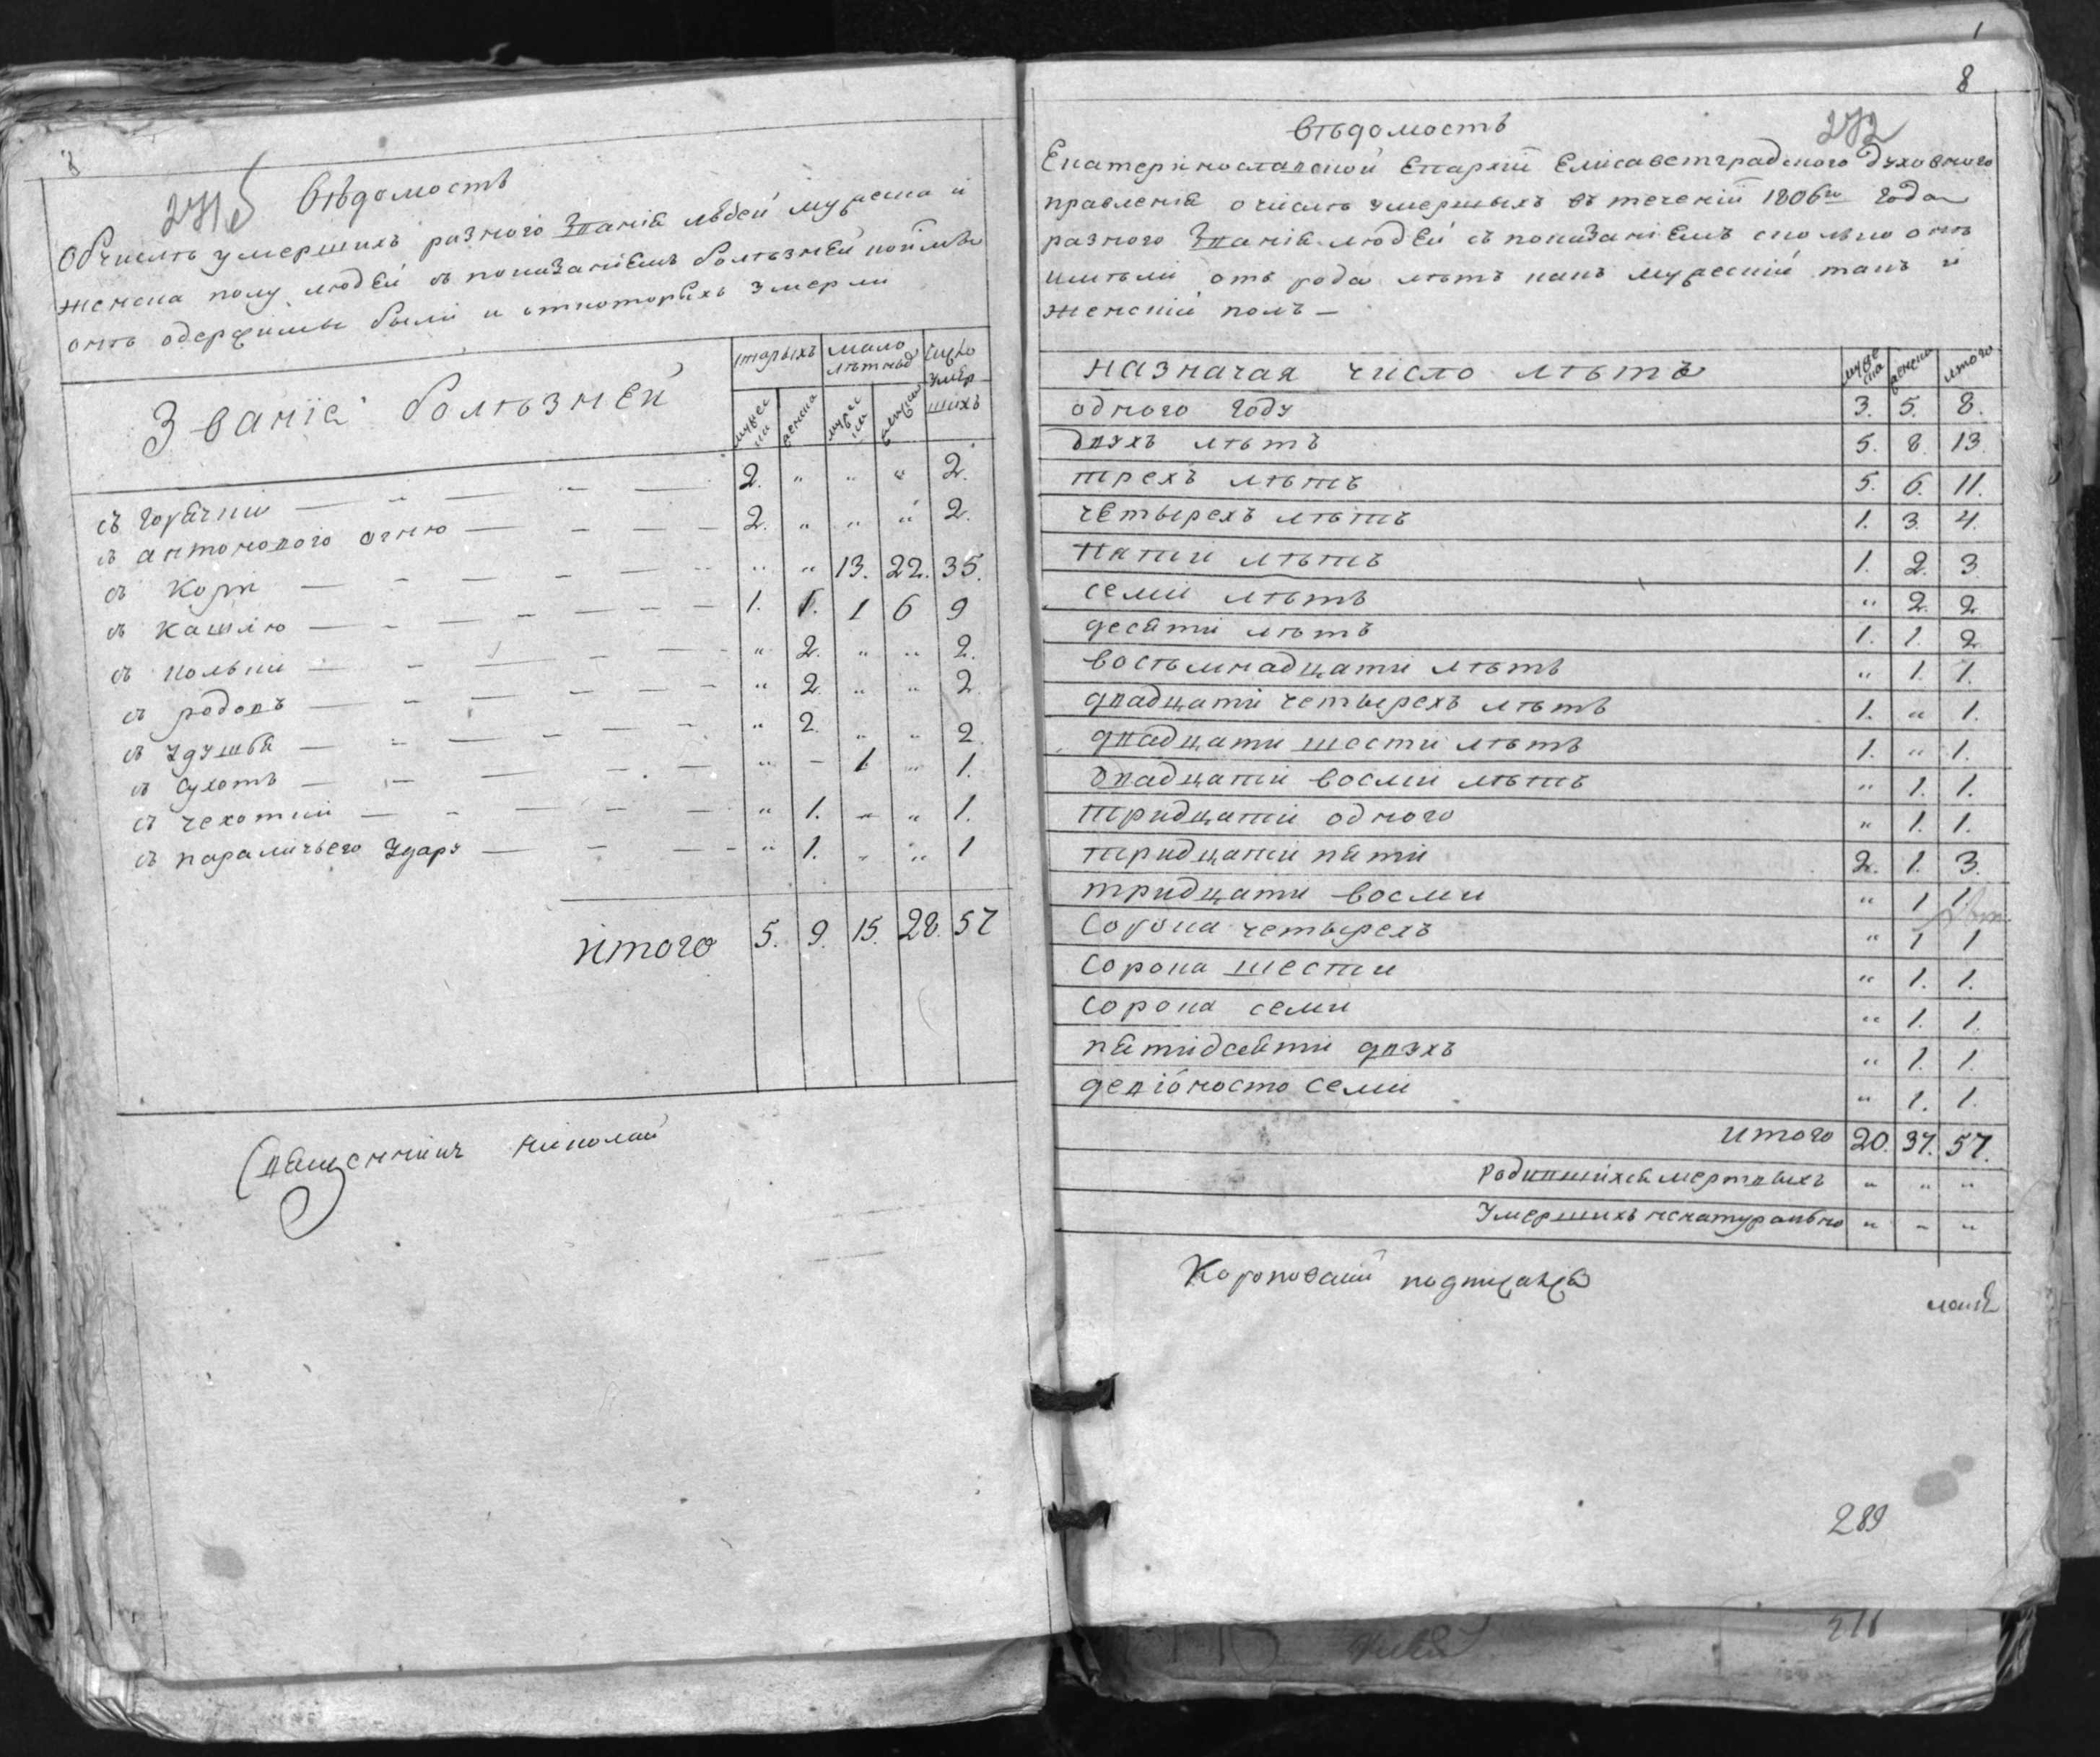 8
271 об
Вѣдомость
Обчислѣ умершихъ разного Званія людей мужеска и
женска полу людей съ показаніемъ болѣзней коими
онѣ одержимы были и откоторыхъ умерли
Званіе болѣзней
старыхъ
мало лѣтныхъ
Число умершихъ
мужеска
женска
мужеска
женска
съ Горячки 2. " " " 2.
съ антонового огню 2. " " " 2.
съ Кори " " 13. 22. 35.
съ Кашлю 1. 1. 1 6 9
съ кольки " 2. " " 2.
съ родовъ " 2. " " 2.
съ удушья " 2. " " 2.
съ Сухотъ " - 1 " 1.
съ чехотки " 1. " " 1.
съ параличьего удару " 1. " " 1
итого 5. 9. 15. 28. 57
Священникъ Николай
8
272
Вѣдомость
Екатеринославской Епархіи Елисаветградского Духовного
правленія очислѣ умершыхъ въ теченіи 1806го Года
разного Званія людей съ показаніемъ сколько онѣ
имѣли отъ рода лѣтъ какъ мужескій такъ и
женскій полъ —
назначая число лѣтъ мужеска женска итого
одного Году 3. 5. 8.
двухъ лѣтъ 5. 8. 13.
трехъ лѣтъ 5. 6. 11.
четырехъ лѣтъ 1. 3. 4.
пяти лѣтъ 1. 2. 3
семи лѣтъ " 2. 2
десяти лѣтъ 1. 1. 2
востьмнадцати лѣтъ " 1. 1.
двадцати четырехъ лѣтъ 1. " 1.
двадцати шести лѣтъ 1. " 1.
двадцати восми лѣтъ " 1. 1.
тридцати одного " 1. 1.
тридцати пяти 2. 1. 3.
тридцати восми " 1 1.
Сорока четырехъ " 1 1
Сорока шести " 1. 1.
Сорока семи " 1. 1.
пятидсяти двухъ " 1. 1.
девіоносто семи " 1. 1.
итого 20. 37. 57.
родившихся мертвыхъ " " "
Умершихъ ненатурально " " "
Короповскій подписался
289